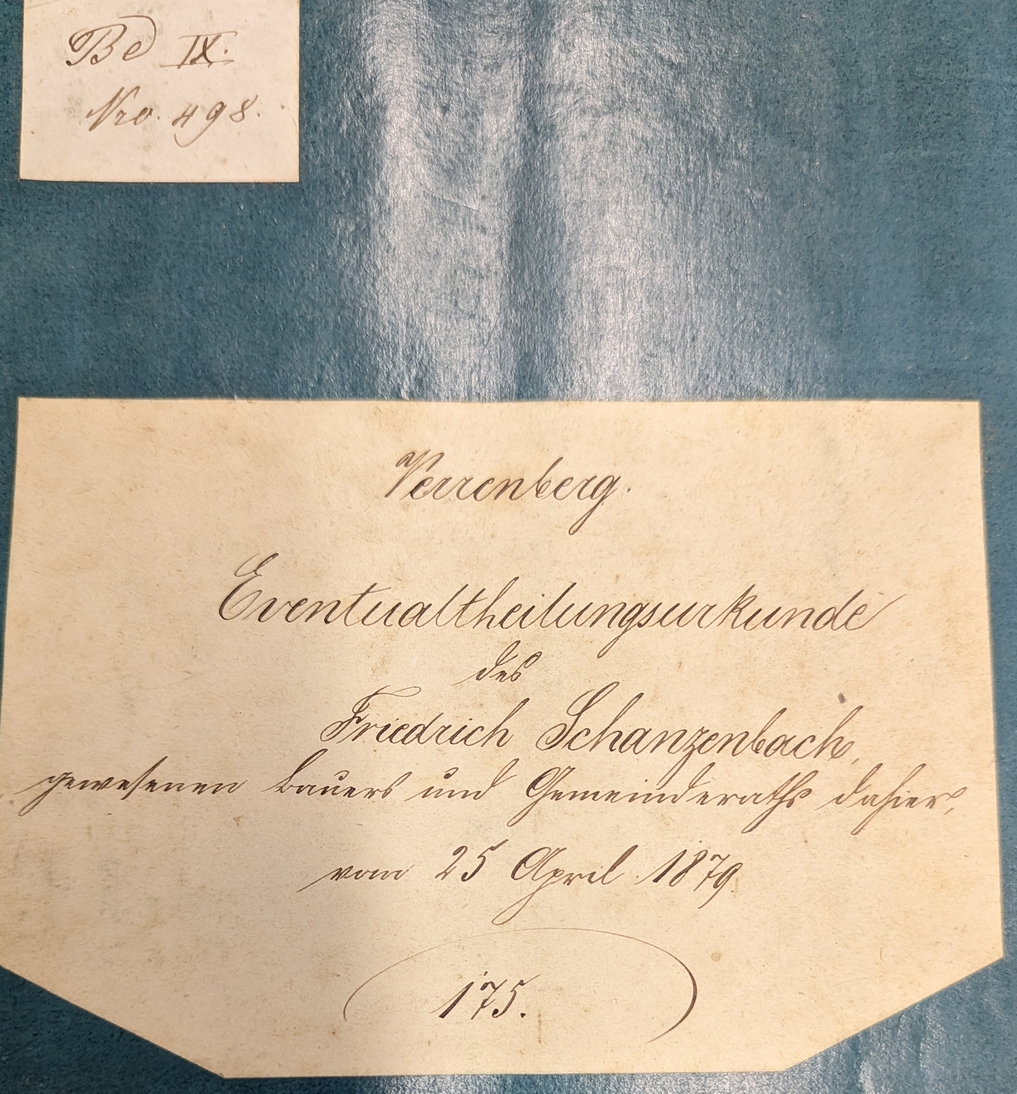 Bd IX.
Nro. 498.
Verrenberg.
Eventualtheilungsurkunde
des
Friedrich Schanzenbach,
gewesenen Bauers und Gemeinderaths dahier,
vom 25 April 1879
175.